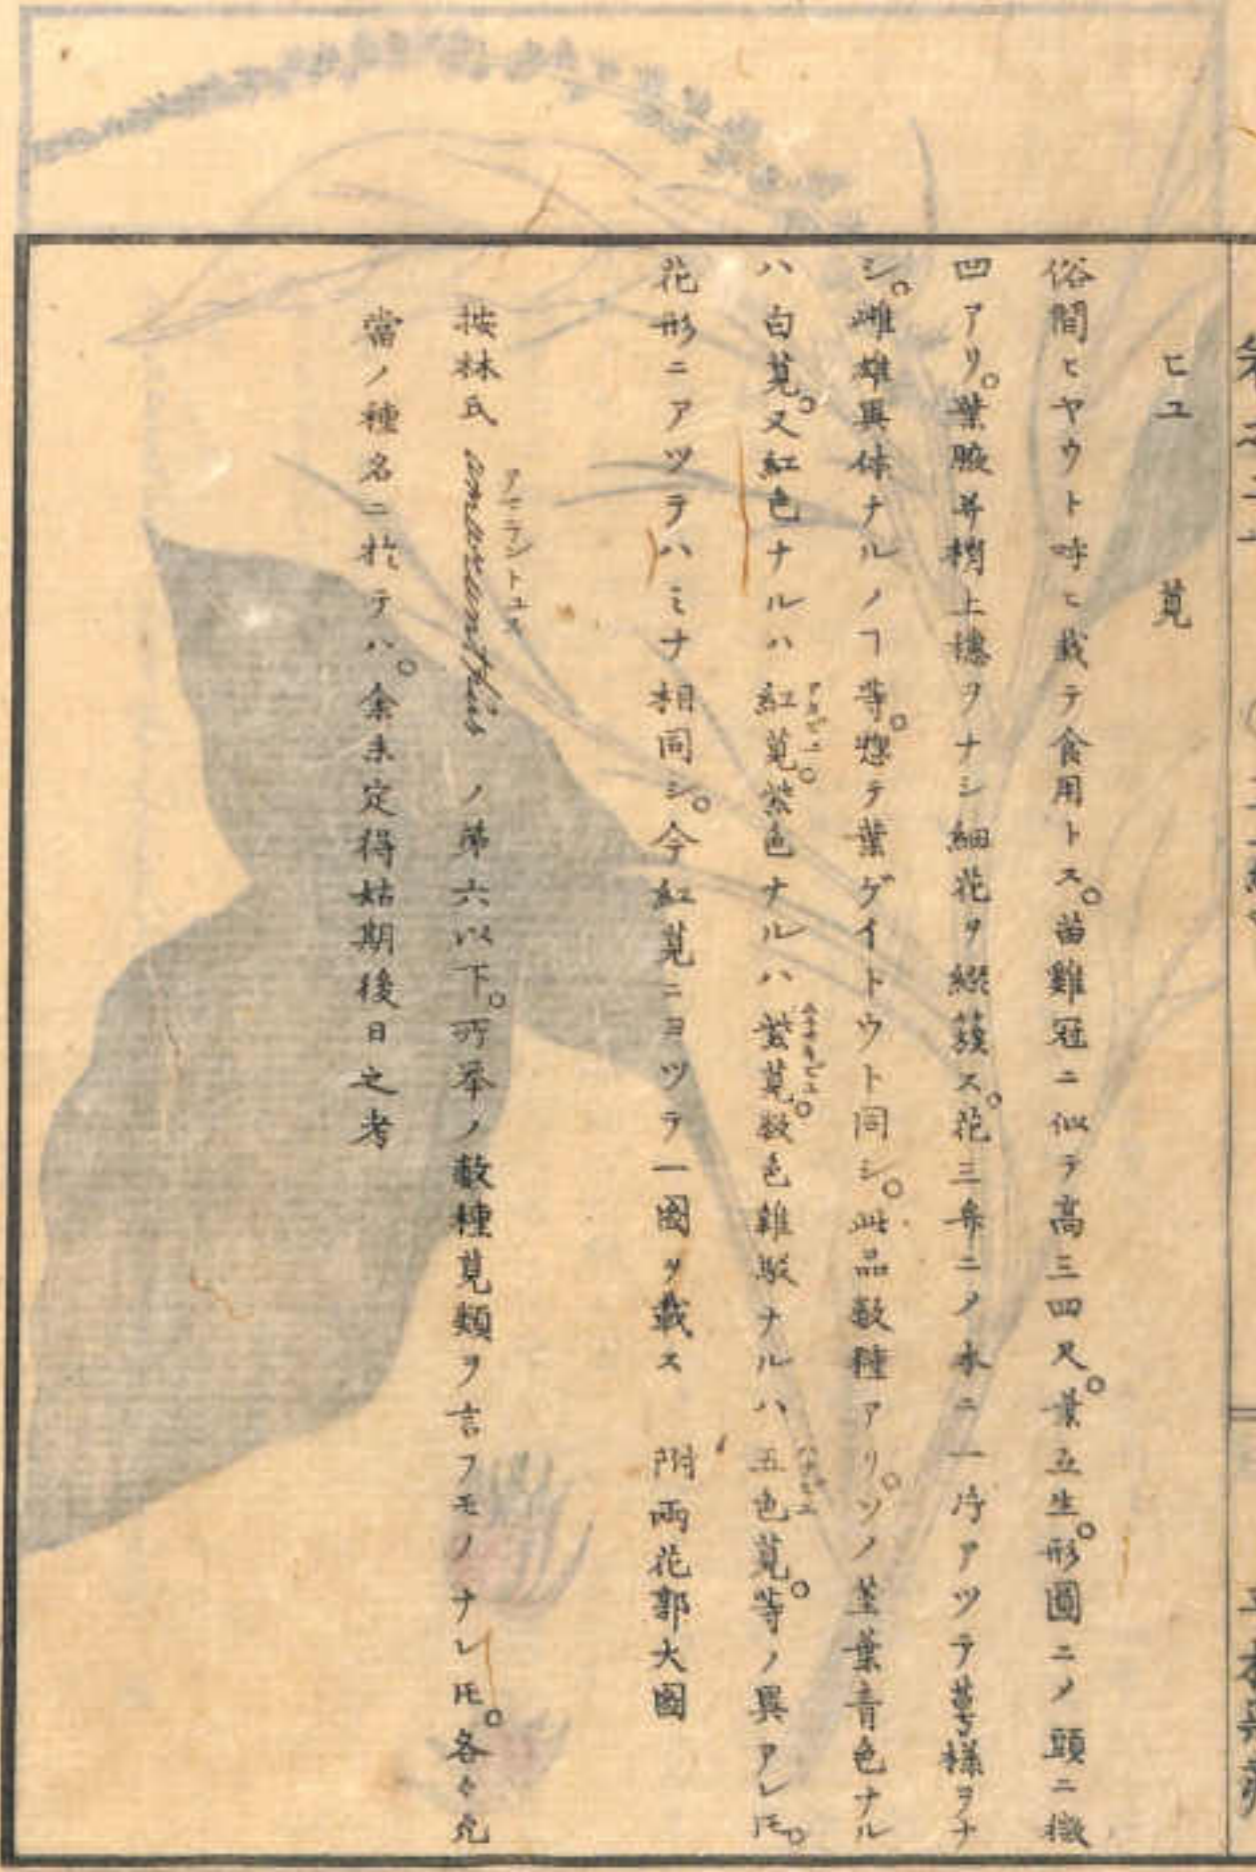 ヒユ　莧
俗間ヒヤウト呼ヒ栽テ食用トス。苗雞冠ニ似テ高三四尺。葉互生。形圓ニ〆頭ニ微
凹アリ。葉腋并梢上穗ヲナシ細花ヲ綴簇ス。花三弁ニ〆本ニ一片アツテ萼様ヲナ
シ。雌雄異体ナルノヿ等。惣テ葉ゲイトウト同シ。此品数種アリ。ソノ莖葉青色ナル
ハ白莧。又紅色ナルハ紅莧。紫色ナルハ紫莧。数色雜駁ナルハ五色莧。等ノ異アレ𪜈。
花形ニアツテハミナ相同シ。今紅莧ニヨツテ一圖ヲ載ス　附両花郭大圖
アマラントユス
按林氏 amaranthus ノ第六以下。所举ノ数種莧類ヲ言フモノナレ𪜈。各々充
當ノ種名ニ於テハ。余未定得姑期後日之考